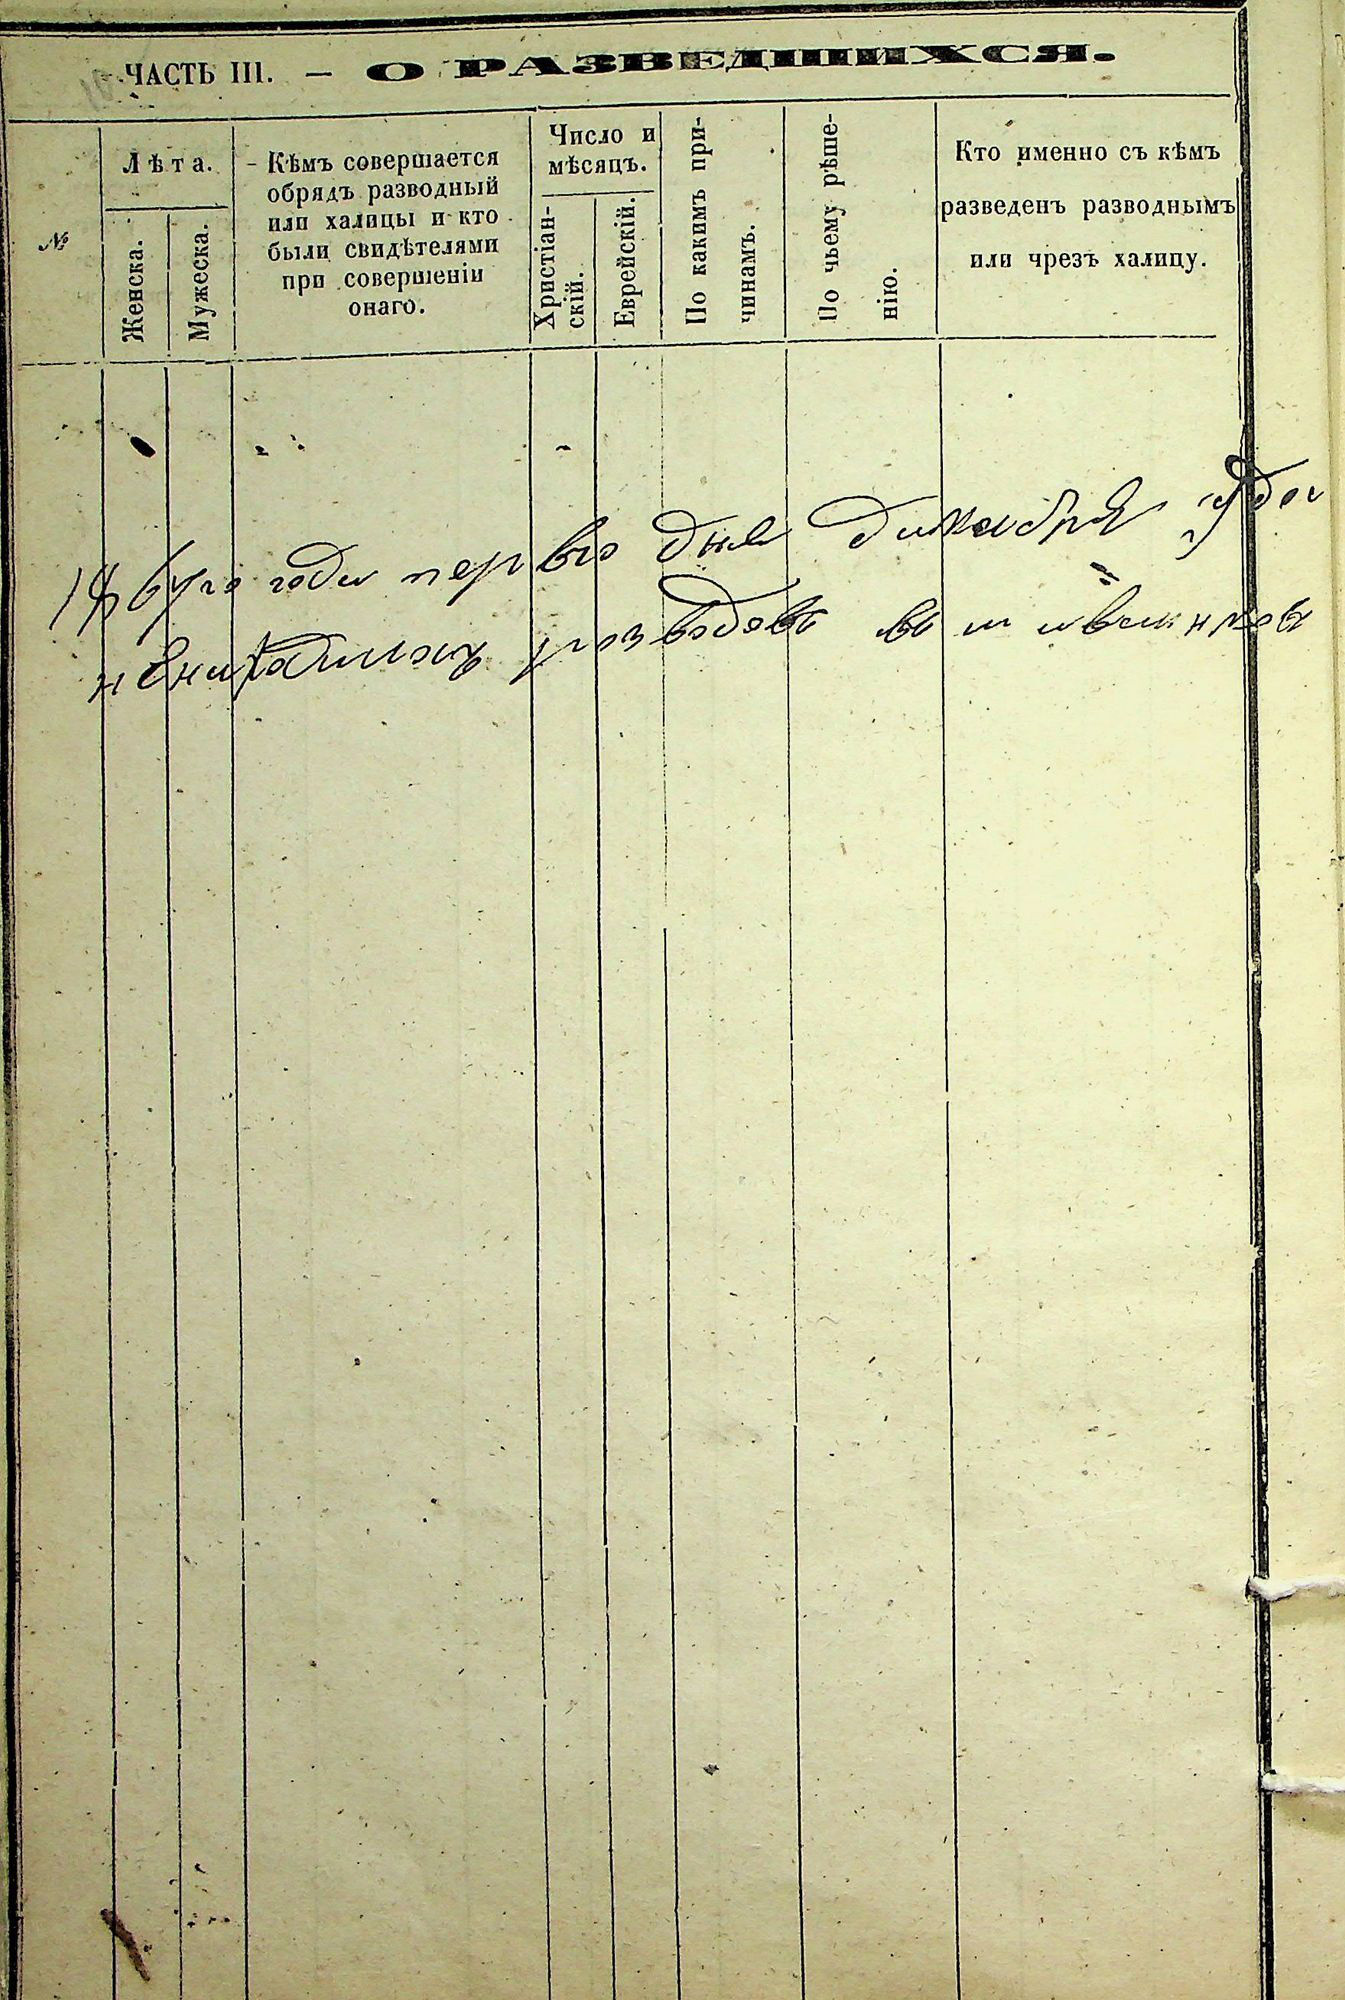 ЧАСТЬ III. — О РАЗВЕДШИХСЯ.
№
Лѣта.
Женска.
Мужеска.
Кѣмъ совершается
обрядъ разводный
или халицы и кто
были свидѣтелями
при совершеніи
онаго.
Число и
мѣсяцъ.
Христіан-
скій.
Еврейскій.
По какимъ при-
чинамъ.
По чьему рѣше-
нію.
Кто именно съ кѣмъ
разведенъ разводнымъ
или чрезъ халицу.
года перваго дня декабря
разводовъ